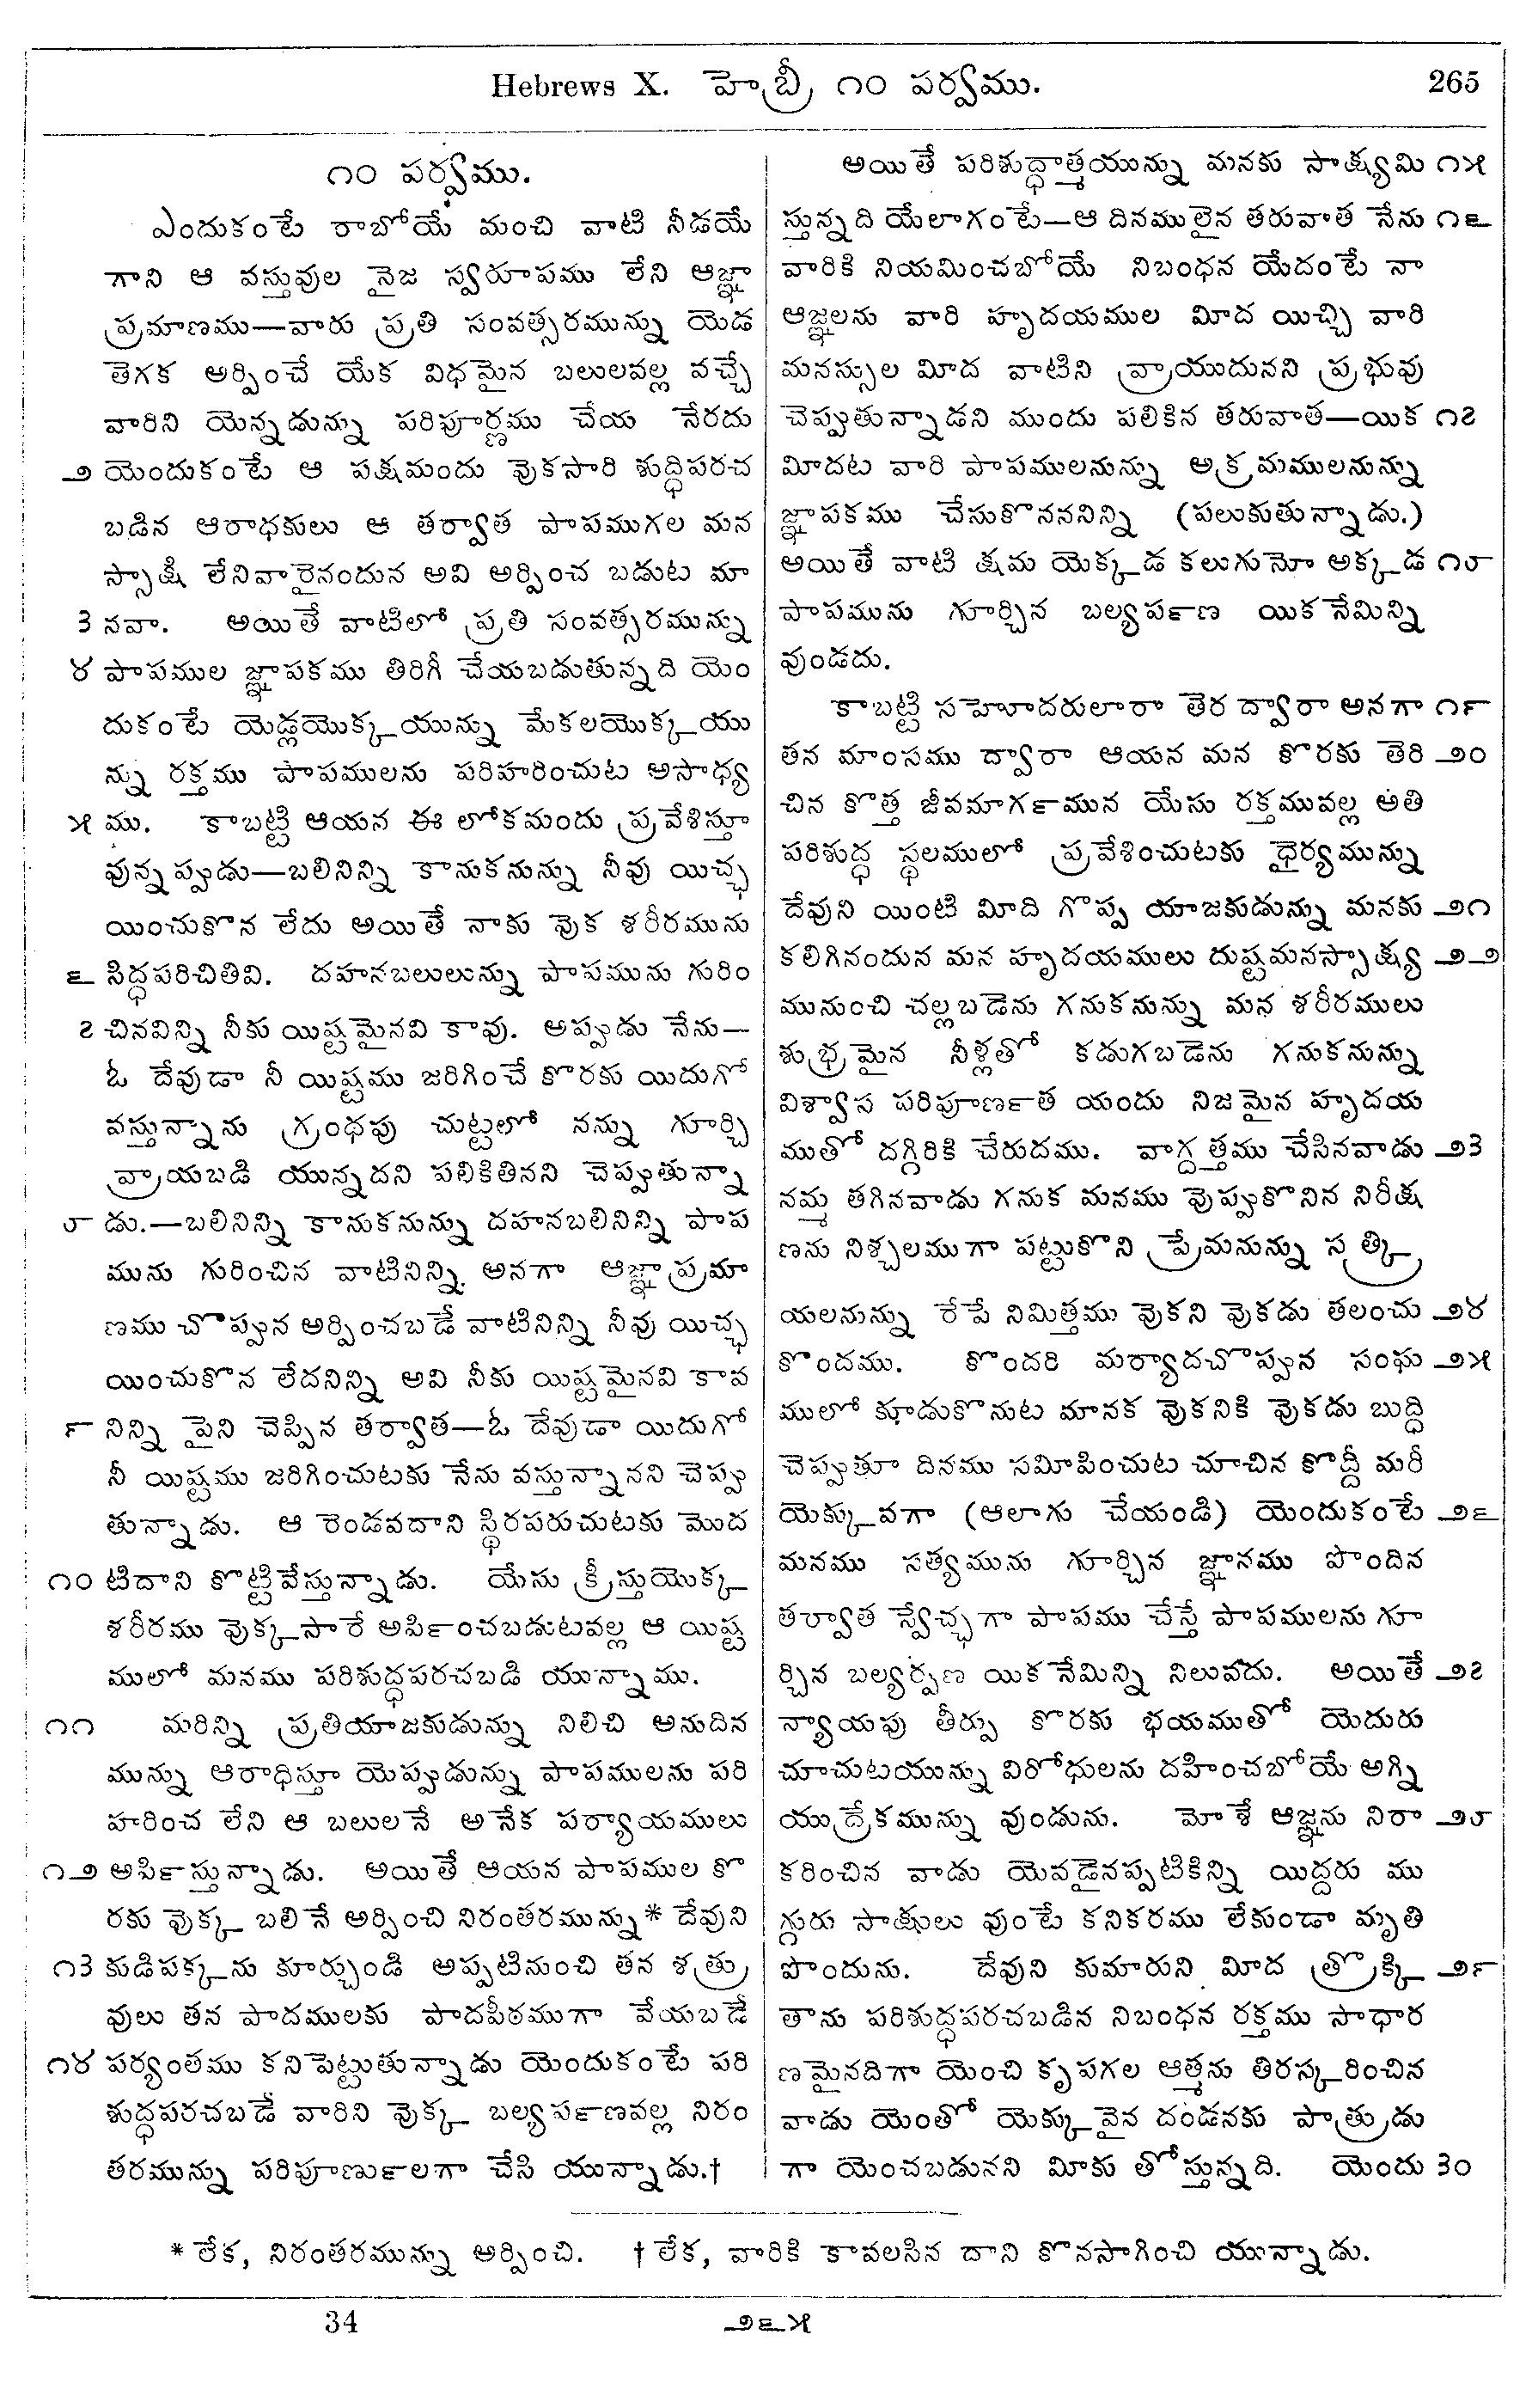 Hebrews X. హెబ్రీ ౧౦ పర్వము. 265
౧౦ పర్వము.
ఎందుకంటే రాబోయే మంచి వాటి నీడయే
గాని ఆ వస్తువుల నైజ స్వరూపము లేని ఆజ్ఞా
ప్రమాణము—వారు ప్రతి సంవత్సరమున్ను యెడ
తెగక అర్పించే యేక విధమైన బలులవల్ల వచ్చే
వారిని యెన్నడున్ను పరిపూర్ణము చేయ నేరదు
౨ యెందుకంటే ఆ పక్షమందు వుకసారి శుద్ధిపరచ
బడిన ఆరాధకులు ఆ తర్వాత పాపముగల మన
స్సాక్షి లేనివారైనందున అవి అర్పించ బడుట మా
౩ నవా. అయితే వాటిలో ప్రతి సంవత్సరమున్ను
౪ పాపముల జ్ఞాపకము తిరిగీ చేయబడుతున్నది యెం
దుకంటే యెడ్లయొక్కయున్ను మేకలయొక్కయు
న్ను రక్తము పాపములను పరిహరించుట అసాధ్య
౫ ము. కాబట్టి ఆయన ఈ లోకమందు ప్రవేశిస్తూ
వున్నప్పుడు—బలినిన్ని కానుకనున్ను నీవు యిచ్ఛ
యించుకొన లేదు అయితే నాకు వుక శరీరమును
౬ సిద్ధపరిచితివి. దహనబలులున్ను పాపమును గురిం
౭ చినవిన్ని నీకు యిష్టమైనవి కావు. అప్పుడు నేను—
ఓ దేవుడా నీ యిష్టము జరిగించే కొరకు యిదుగో
వస్తున్నాను గ్రంథపు చుట్టలో నన్ను గూర్చి
వ్రాయబడి యున్నదని పలికితినని చెప్పుతున్నా
౮ డు.—బలినిన్ని కానుకనున్ను దహనబలినిన్ని పాప
మును గురించిన వాటినిన్ని అనగా ఆజ్ఞాప్రమా
ణము చొప్పున అర్పించబడే వాటినిన్ని నీవు యిచ్ఛ
యించుకొన లేదనిన్ని అవి నీకు యిష్టమైనవి కావ
౯ నిన్ని పైని చెప్పిన తర్వాత—ఓ దేవుడా యిదుగో
నీ యిష్టము జరిగించుటకు నేను వస్తున్నానని చెప్పు
తున్నాడు. ఆ రెండవదాని స్థిరపరుచుటకు మొద
౧౦ టిదాని కొట్టివేస్తున్నాడు. యేసు క్రీస్తుయొక్క
శరీరము వుక్కసారే అపిఁంచబడుటవల్ల ఆ యిష్ట
ములో మనము పరిశుద్ధపరచబడి యున్నాము.
౧౧ మరిన్ని ప్రతియాజకుడున్ను నిలిచి అనుదిన
మున్ను ఆరాధిస్తూ యెప్పుడున్ను పాపములను పరి
హరించ లేని ఆ బలులనే అనేక పర్యాయములు
౧౨ అపిఁస్తున్నాడు. అయితే ఆయన పాపముల కొ
రకు వుక్క బలినే అర్పించి నిరంతరమున్ను* దేవుని
౧౩ కుడిపక్కను కూర్చుండి అప్పటినుంచి తన శత్రు
వులు తన పాదములకు పాదపీఠముగా వేయబడే
౧౪ పర్యంతము కనిపెట్టుతున్నాడు యెందుకంటే పరి
శుద్ధపరచబడే వారిని వుక్క బల్యపఁణవల్ల నిరం
తరమున్ను పరిపూణుఁలగా చేసి యున్నాడు.†
అయితే పరిశుద్ధాత్మయున్ను మనకు సాక్ష్యమి ౧౫
స్తున్నది యేలాగంటే—ఆ దినములైన తరువాత నేను ౧౬
వారికి నియమించబోయే నిబంధన యేదంటే నా
ఆజ్ఞలను వారి హృదయముల మీద యిచ్చి వారి
మనస్సుల మీద వాటిని వ్రాయుదునని ప్రభువు
చెప్పుతున్నాడని ముందు పలికిన తరువాత—యిక ౧౭
మీదట వారి పాపములనున్ను అక్రమములనున్ను
జ్ఞాపకము చేసుకొనననిన్ని (పలుకుతున్నాడు.)
అయితే వాటి క్షమ యెక్కడ కలుగునో అక్కడ ౧౮
పాపమును గూర్చిన బల్యపఁణ యిక నేమిన్ని
వుండదు.
కాబట్టి సహోదరులారా తెర ద్వారా అనగా ౧౯
తన మాంసము ద్వారా ఆయన మన కొరకు తెరి ౨౦
చిన కొత్త జీవమాగఁమున యేసు రక్తమువల్ల అతి
పరిశుద్ధ స్థలములో ప్రవేశించుటకు ధైర్యమున్ను
దేవుని యింటి మీది గొప్ప యాజకుడున్ను మనకు ౨౧
కలిగినందున మన హృదయములు దుష్టమనస్సాక్ష్య ౨౨
మునుంచి చల్లబడెను గనుకనున్ను మన శరీరములు
శుభ్రమైన నీళ్లతో కడుగబడెను గనుకనున్ను
విశ్వాస పరిపూణఁత యందు నిజమైన హృదయ
ముతో దగ్గిరికి చేరుదము. వాగ్దత్తము చేసినవాడు ౨౩
నమ్మ తగినవాడు గనుక మనము వుప్పుకొనిన నిరీక్ష
ణను నిశ్చలముగా పట్టుకొని ప్రేమనున్ను సత్క్రి
యలనున్ను రేపే నిమిత్తము వుకని వుకడు తలంచు ౨౪
కొందము. కొందరి మర్యాదచొప్పున సంఘ ౨౫
ములో కూడుకొనుట మానక వుకనికి వుకడు బుద్ధి
చెప్పుతూ దినము సమీపించుట చూచిన కొద్దీ మరీ
యెక్కువగా (ఆలాగు చేయండి) యెందుకంటే ౨౬
మనము సత్యమును గూర్చిన జ్ఞానము పొందిన
తర్వాత స్వేచ్ఛగా పాపము చేస్తే పాపములను గూ
ర్చిన బల్యర్పణ యిక నేమిన్ని నిలువదు. అయితే ౨౭
న్యాయపు తీర్పు కొరకు భయముతో యెదురు
చూచుటయున్ను విరోధులను దహించబోయే అగ్ని
యుద్రేకమున్ను వుండును. మోశే ఆజ్ఞను నిరా ౨౮
కరించిన వాడు యెవడైనప్పటికిన్ని యిద్దరు ము
గ్గురు సాక్షులు వుంటే కనికరము లేకుండా మృతి
పొందును. దేవుని కుమారుని మీద త్రొక్కి ౨౯
తాను పరిశుద్ధపరచబడిన నిబంధన రక్తము సాధార
ణమైనదిగా యెంచి కృపగల ఆత్మను తిరస్కరించిన
వాడు యెంతో యెక్కువైన దండనకు పాత్రుడు
గా యెంచబడునని మీకు తోస్తున్నది. యెందు ౩౦
* లేక, నిరంతరమున్ను అర్పించి. † లేక, వారికి కావలసిన దాని కొనసాగించి యున్నాడు.
34 ౨౬౫